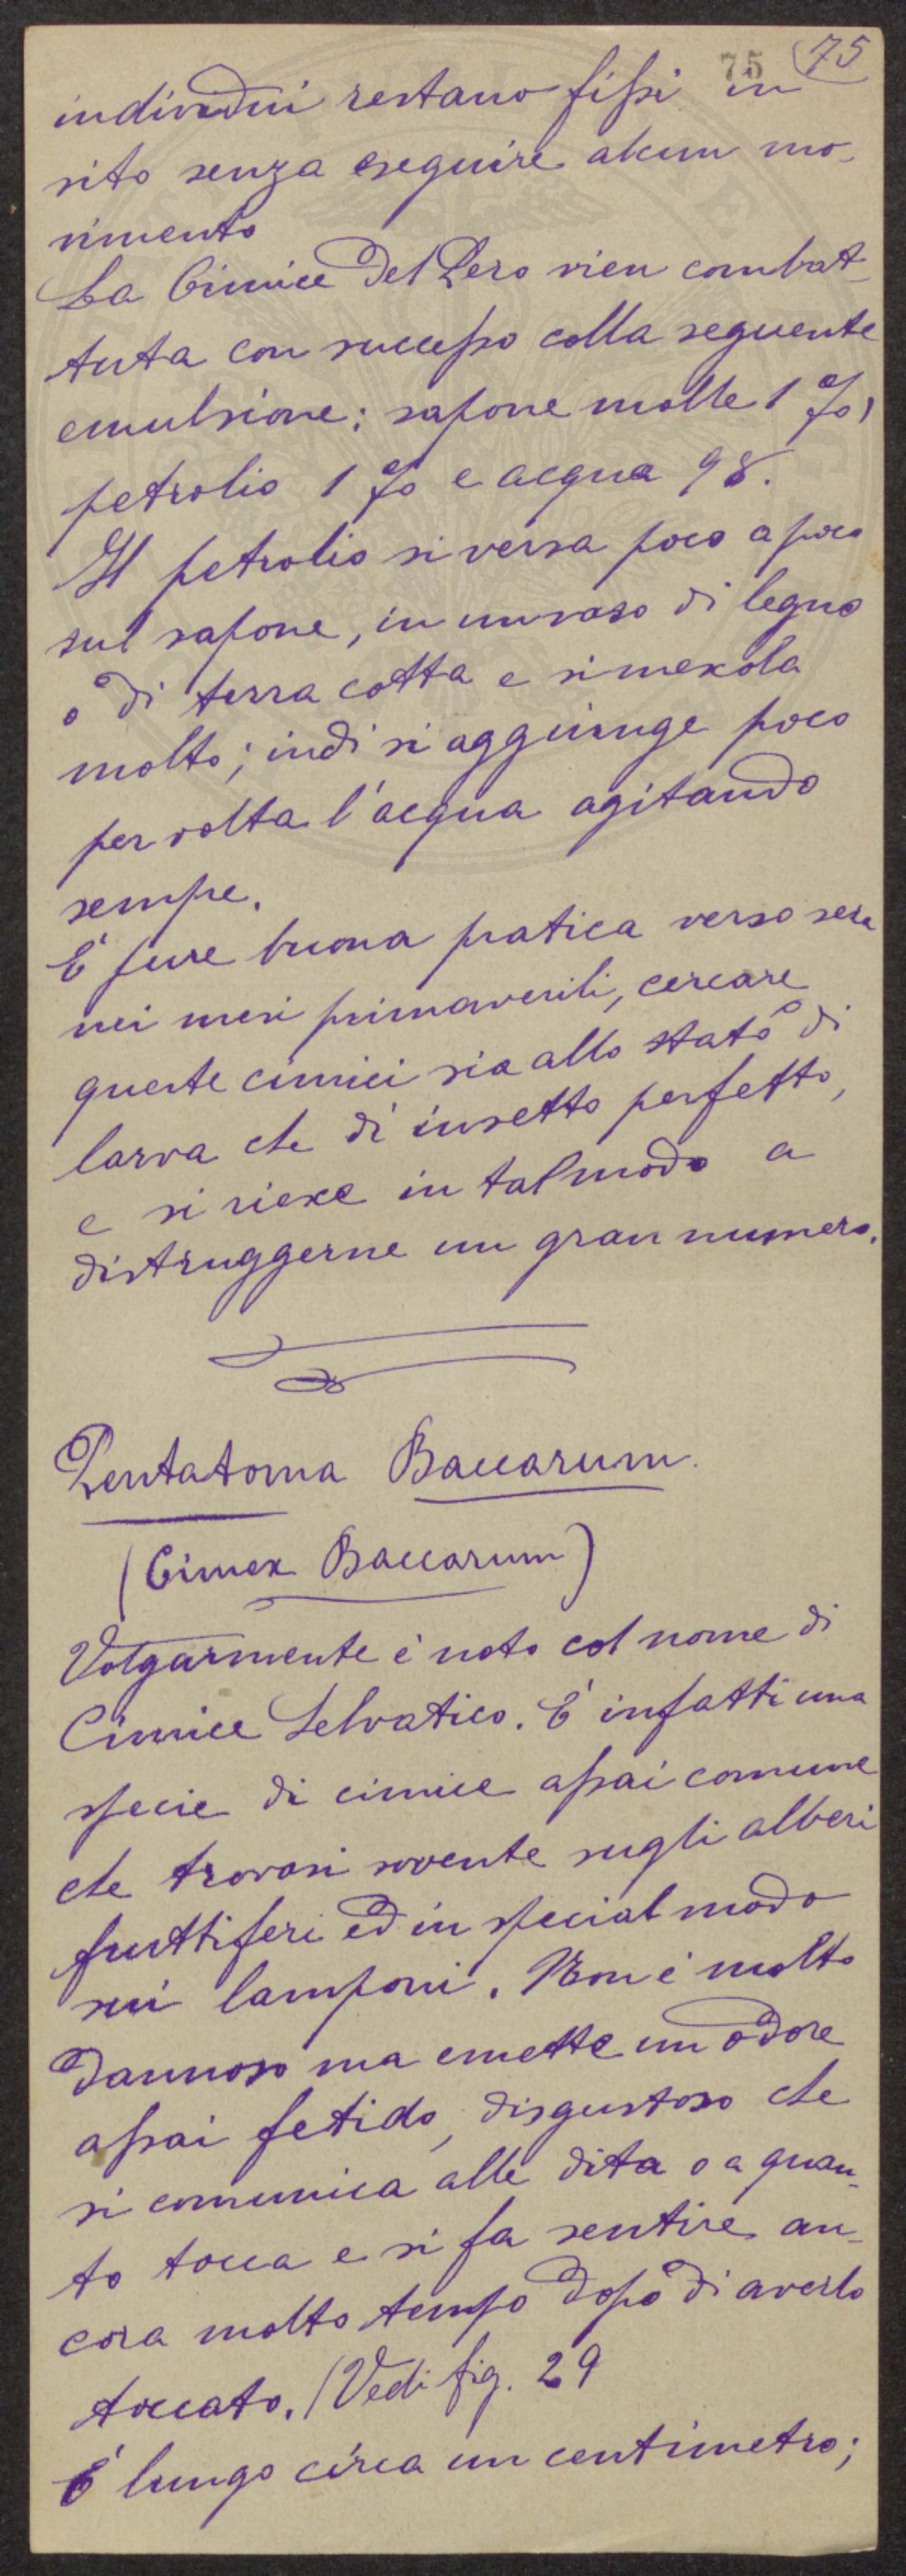 75 (75
individui restano fissi in
sito senza eseguire alcun mo-
vimento
La Cimice del Pero vien combat-
tuta con successo colla seguente
emulsione: sapone molle 1 %,
petrolio 1 % e acqua 98.
Il petrolio si versa poco a poco
sul sapone, in un vaso di legno
o di terra cotta e si mescola
molto; indi si aggiunge poco
per volta l'acqua agitando
sempre.
È pure buona pratica verso sera
nei mesi primaverili, cercare
queste cimici sia allo stato di
larva che di insetto perfetto,
e si riesce in tal modo a
distruggerne un gran numero.
Pentatoma Baccarum.
(Cimex Baccarum)
Volgarmente è noto col nome di
Cimice Selvatico. È infatti una
specie di cimice assai comune
che trovasi sovente sugli alberi
fruttiferi ed in special modo
sui lamponi. Non è molto
dannoso ma emette un odore
assai fetido, disgustoso che
si comunica alle dita o a quan-
to tocca e si fa sentire an-
cora molto tempo dopo di averlo
toccato. (Vedi fig. 29
È lungo circa un centimetro;